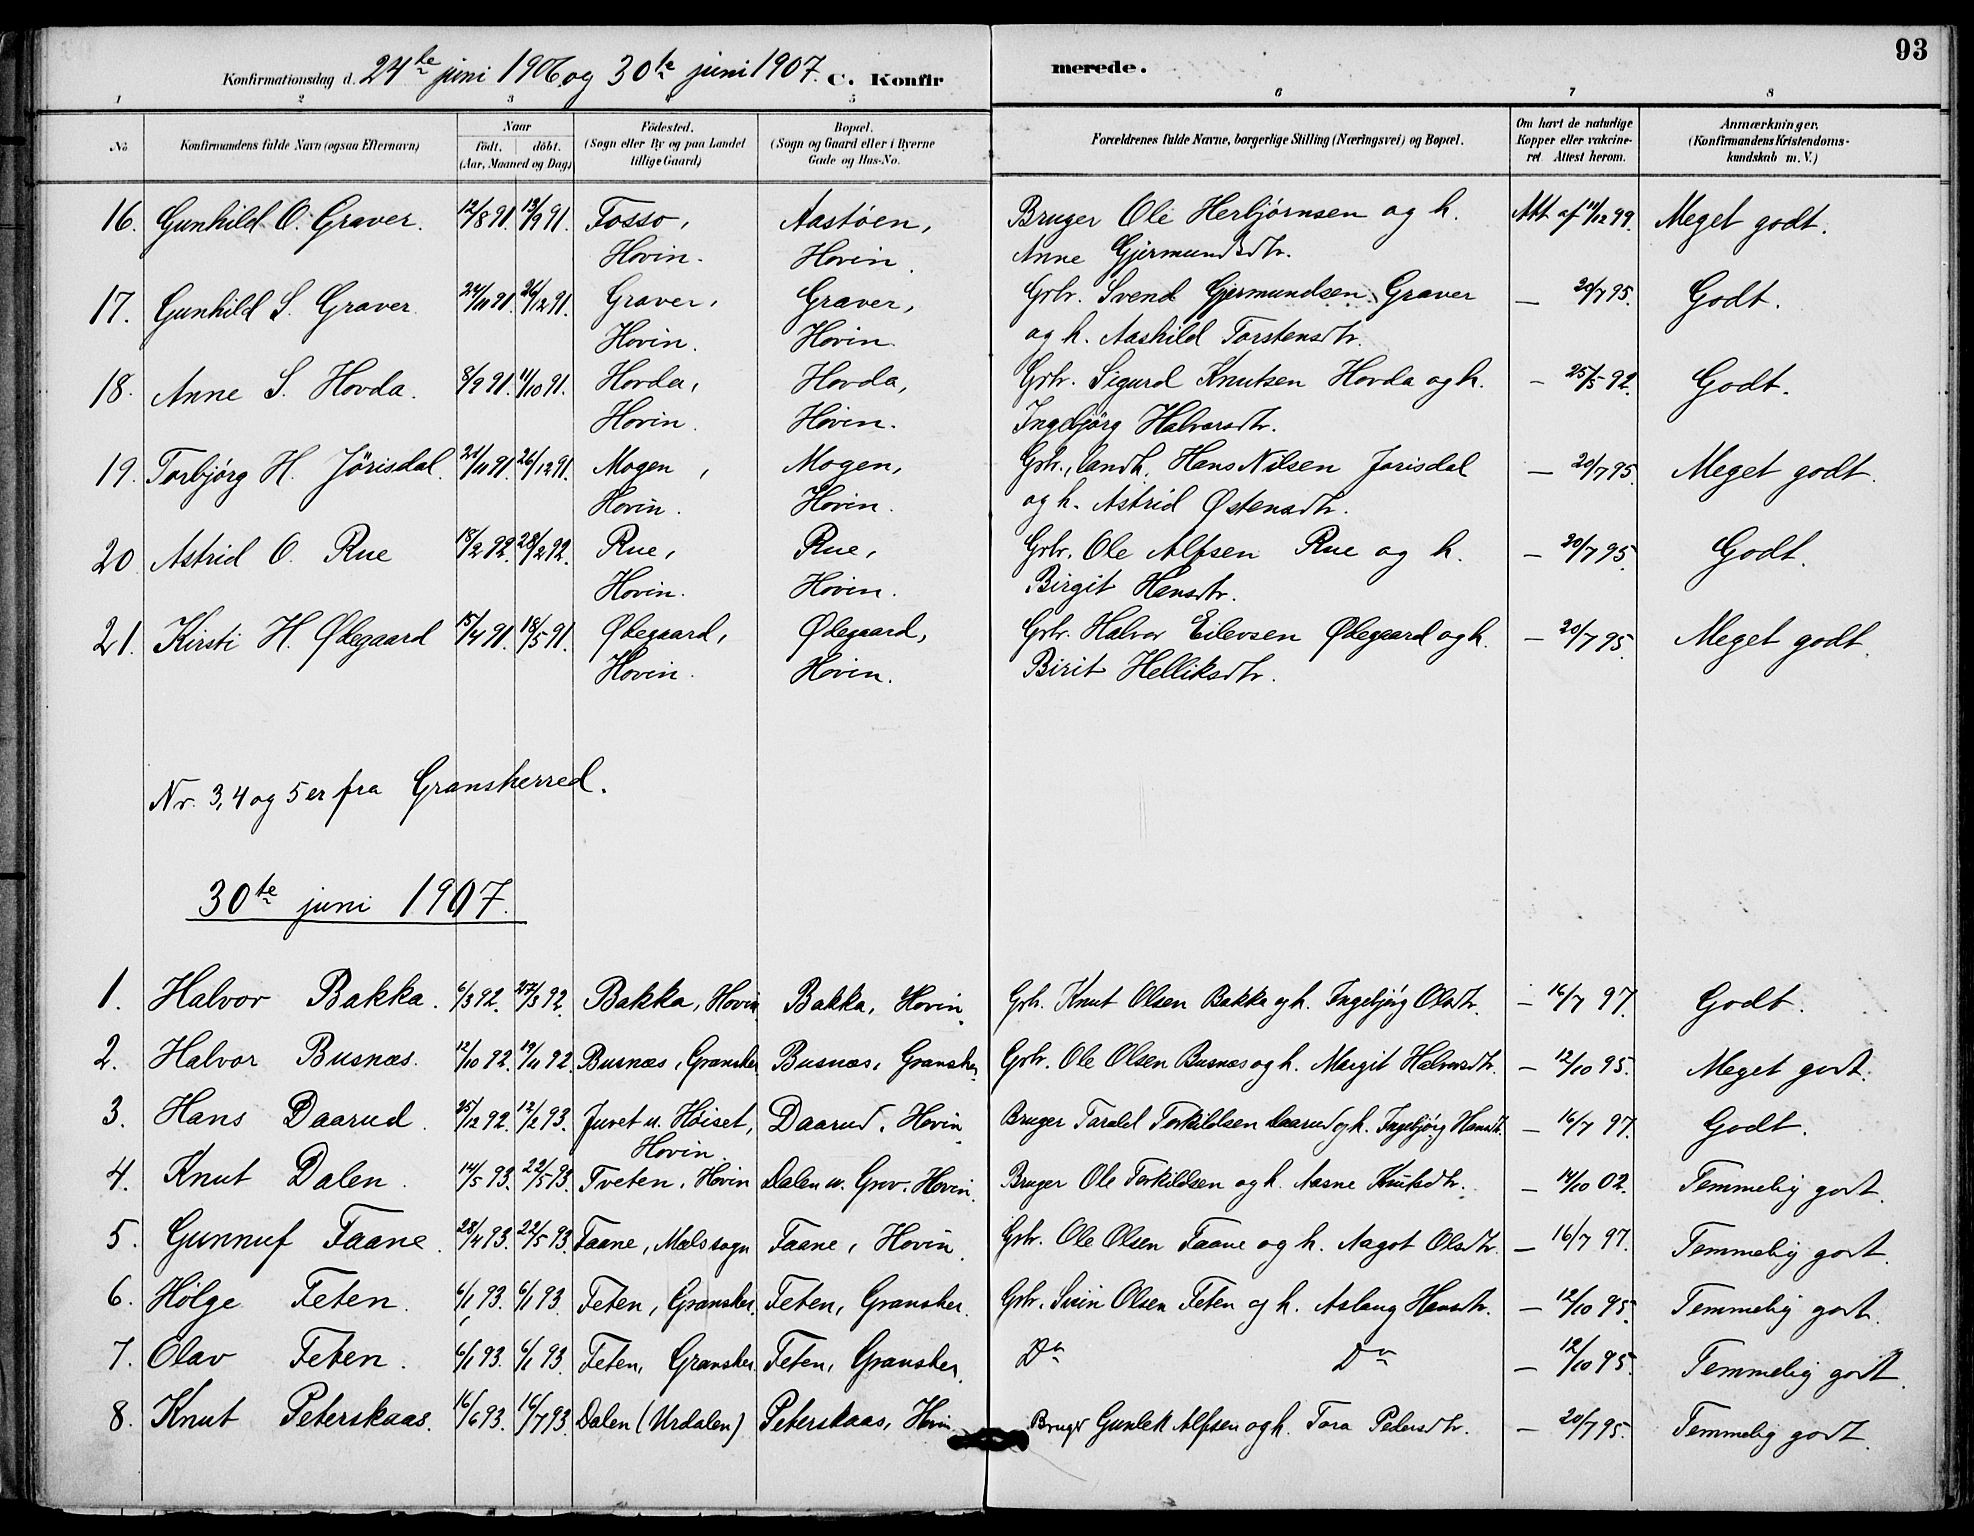 93
Konfirmationsdag d. 24te juni 1906 og 30te juni 1907. C. Konfirmerede.
1 2 3 4 5 6 7 8
No Konfirmandens fulde Navn (ogsaa Efternavn) Naar födt. döbt. (Aar, Maaned og Dag) Födested. (Sogn eller By og paa Landet tillige Gaard) Bopæl. (Sogn og Gaard eller i Byerne Gade og Hus-No. Forældrenes fulde Navne, borgerlige Stilling (Næringsvei) og Bopæl. Om havt de naturlige Kopper eller vakcineret Attest herom. Anmærkninger. (Konfirmandens Kristendomskundskab m. V.)
16. Gunhild O. Graver. 12/8 91. 13/9 91. Fosso, Aastøen, Bruger Ole Herbjørnsen og h. Att af 11/12 99. Meget godt.
Hovin. Hovin. Anne Gjermundsdtr.
17. Gunhild S. Graver 24/11 91. 26/12 91. Graver, Graver, Grbr. Svend Gjermundsen Graver — 20/7 95. Godt.
Hovin. Hovin. og h. Aashild Torstensdtr.
18. Anne S. Hovda. 8/9 91. 11/10 91. Hovda, Hovda, Grbr. Sigurd Knutsen Hovda og h. — 25/5 92. Godt.
Hovin. Hovin. Ingebjørg Halvorsdtr.
19. Torbjørg H. Jørisdal. 21/11 91. 26/12 91. Mogen, Mogen, Grbr., landh. Hans Nilsen Jorisdal — 20/7 95. Meget godt.
Hovin. Hovin. og h. Astrid Østensdtr.
20 Astrid O. Rue 18/2 92. 28/2 92. Rue, Rue, Grbr. Ole Alfsen Rue og h. — 20/7 95. Godt.
Hovin. Hovin. Birgit Hansdtr.
21. Kirsti H. Ødegaard 15/4 91. 18/5 91. Ødegaard, Ødegaard, Grbr. Halvor Eilevsen Ødegaard og h. — 20/7 95. Meget godt.
Hovin. Hovin. Birit Helliksdtr.
Nr. 3, 4 og 5 er fra Gransherred.
30te juni 1907.
1. Halvor Bakka. 6/3 92. 27/3 92. Bakka, Hovin Bakka, Hovin. Grb. Knut Olsen Bakka og h. Ingebjørg Olsdtr. — 16/7 97. Godt.
2. Halvor Busnæs. 12/10 92. 19/11 92. Busnæs, Gransher. Busnæs, Gransher. Grbr. Ole Olsen Busnæs og h. Margit Halvorsdtr. — 12/10 95. Meget godt.
3. Hans Daarud. 25/12 92. 12/2 93. Juvet u. Høiset, Daarud, Hovin. Bruger Tarald Torkildsen Daarud og h. Ingebjørg Hansdtr. — 16/7 97. Godt.
Hovin.
4. Knut Dalen. 14/5 93. 22/5 93. Tveten, Hovin Dalen u. Grov. Hovin. Bruger Ole Torkildsen og h. Aasne Knutsdtr. — 14/10 02. Temmelig godt.
5. Gunnuf Faane. 28/4 93. 22/5 93. Faane, Mæls sogn Faane, Hovin. Grbr. Ole Olsen Faane og h. Aagot Olsdtr. — 16/7 97. Temmelig godt.
6. Hølge Feten. 6/1 93. 6/1 93. Feten, Gransher. Feten, Gransher. Grbr. Svein Olsen Feten og h. Aslaug Hansdtr. — 12/10 95. Temmelig godt.
7. Olav Feten. 6/1 93. 6/1 93. Feten, Gransher. Feten, Gransher. Do Do — 12/10 95. Temmelig godt.
8. Knut Peterskaas. 16/6 93. 16/7 93. Dalen (Urdalen) Peterskaas, Hovin Bruger Gunlek Alfsen og h. Tora Pedersdtr. — 20/7 95. Temmelig godt.